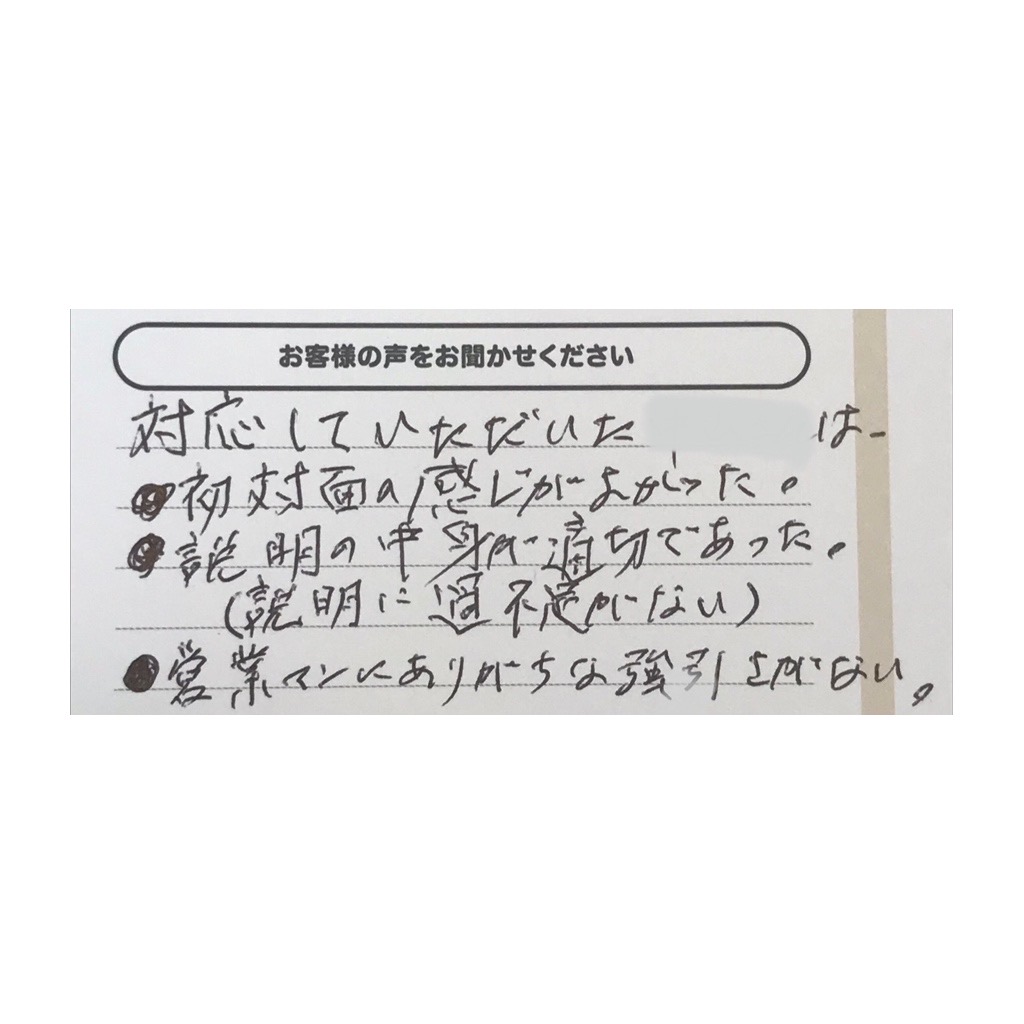 お客様の声をお聞かせください
対応していただいた は、
●初対面の感じがよかった。
●説明の中身が適切であった。
(説明に過不足がない)
●営業マンにありがちな強引さがない。